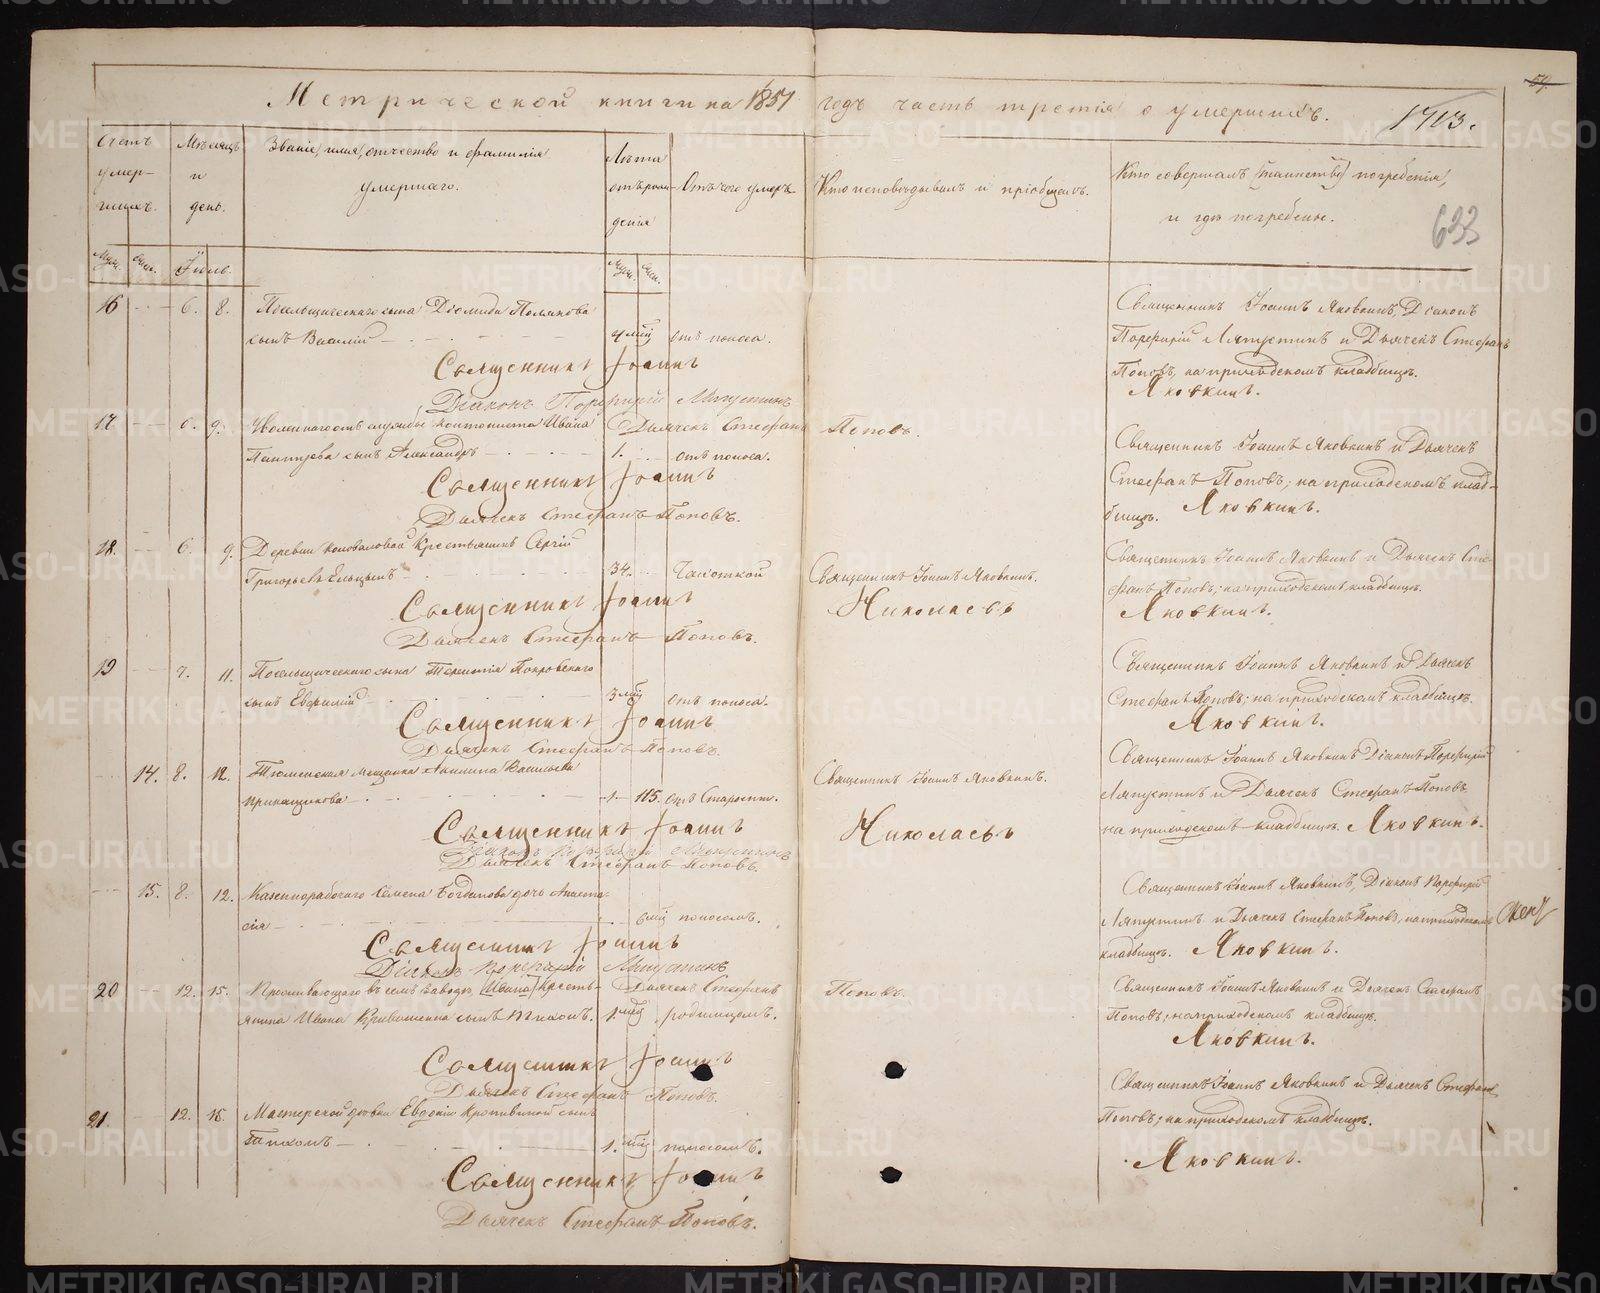 Метрической книги на 1857 годъ часть третія о умершихъ.
59.
1713.
633
Счетъ умер-шихъ.
Мѣсяцъ и день.
Званіе, имя, отчество и фамилія умершаго.
Лѣта отъ рож-денія
Отъ чего умеръ
Кто исповѣдывалъ и пріобщалъ.
Кто совершалъ (таинство) погребенія, и гдѣ погребенъ.
Муж. Жен. Іюль. Муж. Жен.
16 6. 8. сына Діомида Полякова
сынъ Василій отъ поноса.
Священникъ Іоаннъ Яковкинъ, Діаконъ
Порфирій Ляпустинъ и Дьячекъ Стефанъ
Поповъ, на приходскомъ кладбищѣ.
Священникъ Іоаннъ Яковкинъ.
Діаконъ Порфирій Ляпустинъ
Дьячекъ Стефанъ Поповъ.
17 6. 9. службы Ивана
сынъ Александръ 1. отъ поноса.
Священникъ Іоаннъ Яковкинъ и Дьячекъ
Стефанъ Поповъ; на приходскомъ клад-
бищѣ.
Священникъ Іоаннъ Яковкинъ.
Дьячекъ Стефанъ Поповъ.
18. 6. 9. Деревни Коноваловой Крестьянинъ Сергій
Григорьевъ Ельцынъ 34. Чахоткой
Священникъ Іоаннъ Яковкинъ.
Священникъ Іоаннъ Яковкинъ и Дьячекъ Сте-
фанъ Поповъ; на приходскомъ кладбищѣ.
Священникъ Іоаннъ Николаевъ Яковкинъ.
Дьячекъ Стефанъ Поповъ.
19 7. 11. сына Терентія Покровскаго
сынъ Евфимій 3 отъ поноса.
Священникъ Іоаннъ Яковкинъ и Дьячекъ
Стефанъ Поповъ; на приходскомъ кладбищѣ.
Священникъ Іоаннъ Яковкинъ.
Дьячекъ Стефанъ Поповъ.
14. 8. 12. Тюменская Мещанка Васильева
Прикащикова 115. отъ Старости.
Священникъ Іоаннъ Яковкинъ.
Священникъ Іоаннъ Яковкинъ Діаконъ Порфирій
Ляпустинъ и Дьячекъ Стефанъ Поповъ
на приходскомъ кладбищѣ.
Священникъ Іоаннъ Николаевъ Яковкинъ.
Діаконъ Порфирій Ляпустинъ
Дьячекъ Стефанъ Поповъ.
15. 8. 12. Казеннорабочаго Семена Богданова дочь Анаста-
сія 6 поносомъ.
Священникъ Іоаннъ Яковкинъ, Діаконъ Порфирій
Ляпустинъ и Дьячекъ Стефанъ Поповъ, на приходскомъ
кладбищѣ.
Священникъ Іоаннъ Яковкинъ.
Діаконъ Порфирій Ляпустинъ
Дьячекъ Стефанъ Поповъ.
20 12. 15. Проживающаго въ семъ заводѣ, (Ивана) Кресть-
янина Ивана сынъ Тихонъ. 1. родимцомъ.
Священникъ Іоаннъ Яковкинъ и Дьячекъ Стефанъ
Поповъ; на приходскомъ кладбищѣ.
Священникъ Іоаннъ Яковкинъ.
Дьячекъ Стефанъ Поповъ.
21. 12. 15. Мастерской дочери Евдокіи сынъ
Тихонъ 1. поносомъ.
Священникъ Іоаннъ Яковкинъ и Дьячекъ Стефанъ
Поповъ; на приходскомъ кладбищѣ.
Священникъ Іоаннъ Яковкинъ.
Дьячекъ Стефанъ Поповъ.
METRIKI.GASO-URAL.RU